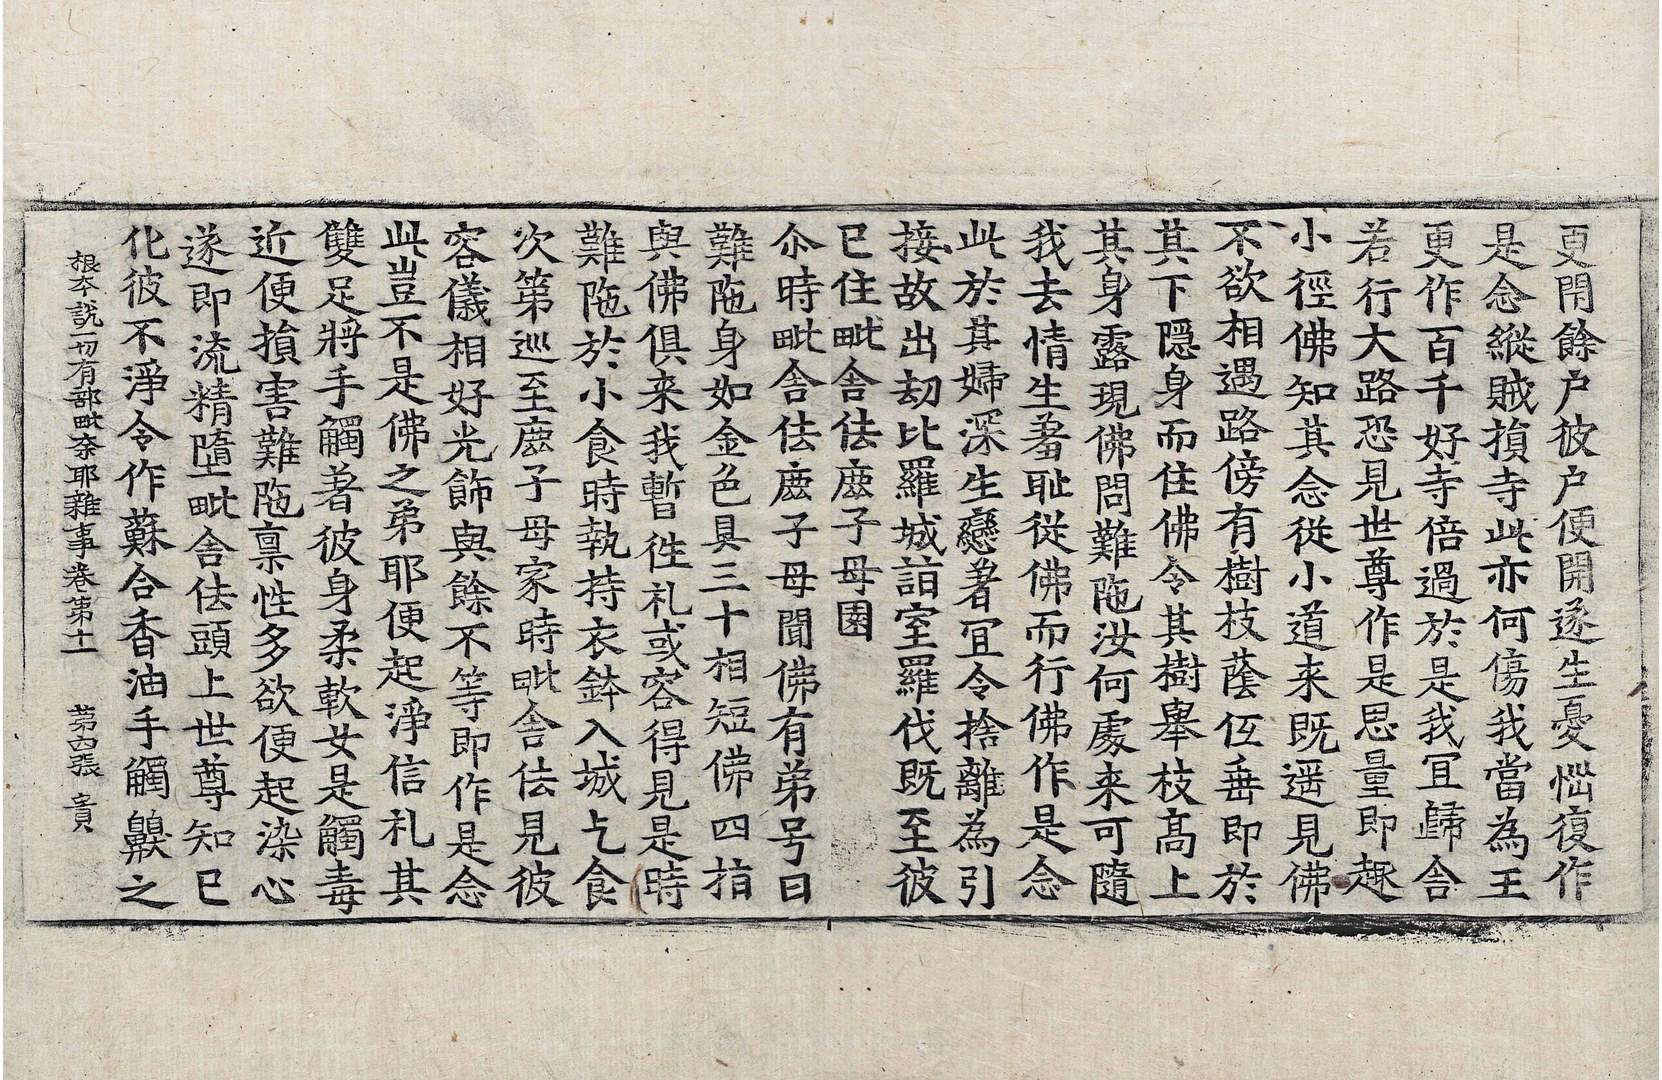 更閇餘户彼户便開遂生憂惱復作
是念縱賊損寺此亦何傷我當為王
更作百千好寺倍過於是我冝歸舎
若行大路恐見世尊作是思量即趣
小徑佛知其念從小道来既遥見佛
不欲相遇路傍有樹枝蔭伍垂即於
其下隱身而住佛令其樹舉枝髙上
其身露現佛問難陁汝何處来可隨
我去情生羞耻從佛而行佛作是念
此於其婦深生戀著冝令捨離為引
接故出劫比羅城詣室羅伐既至彼
已住毗舎佉鹿子母園
尒時毗舎佉鹿子母聞佛有弟号曰
難陁身如金色具三十相短佛四指
與佛俱来我暫徃礼或容得見是時
難陁於小食時執持衣鉢入城乞食
次第巡至鹿子母家時毗舎佉見彼
容儀相好光飾與餘不等即作是念
此豈不是佛之弟耶便起淨信礼其
雙足將手觸著彼身柔軟女是觸毒
近便損害難陁禀性多欲便起染心
遂即流精墮毗舎佉頭上世尊知已
化彼不淨令作蘇合香油手觸齅之
根夲說一切有部毗奈耶雜事卷第十一　第四張　賓